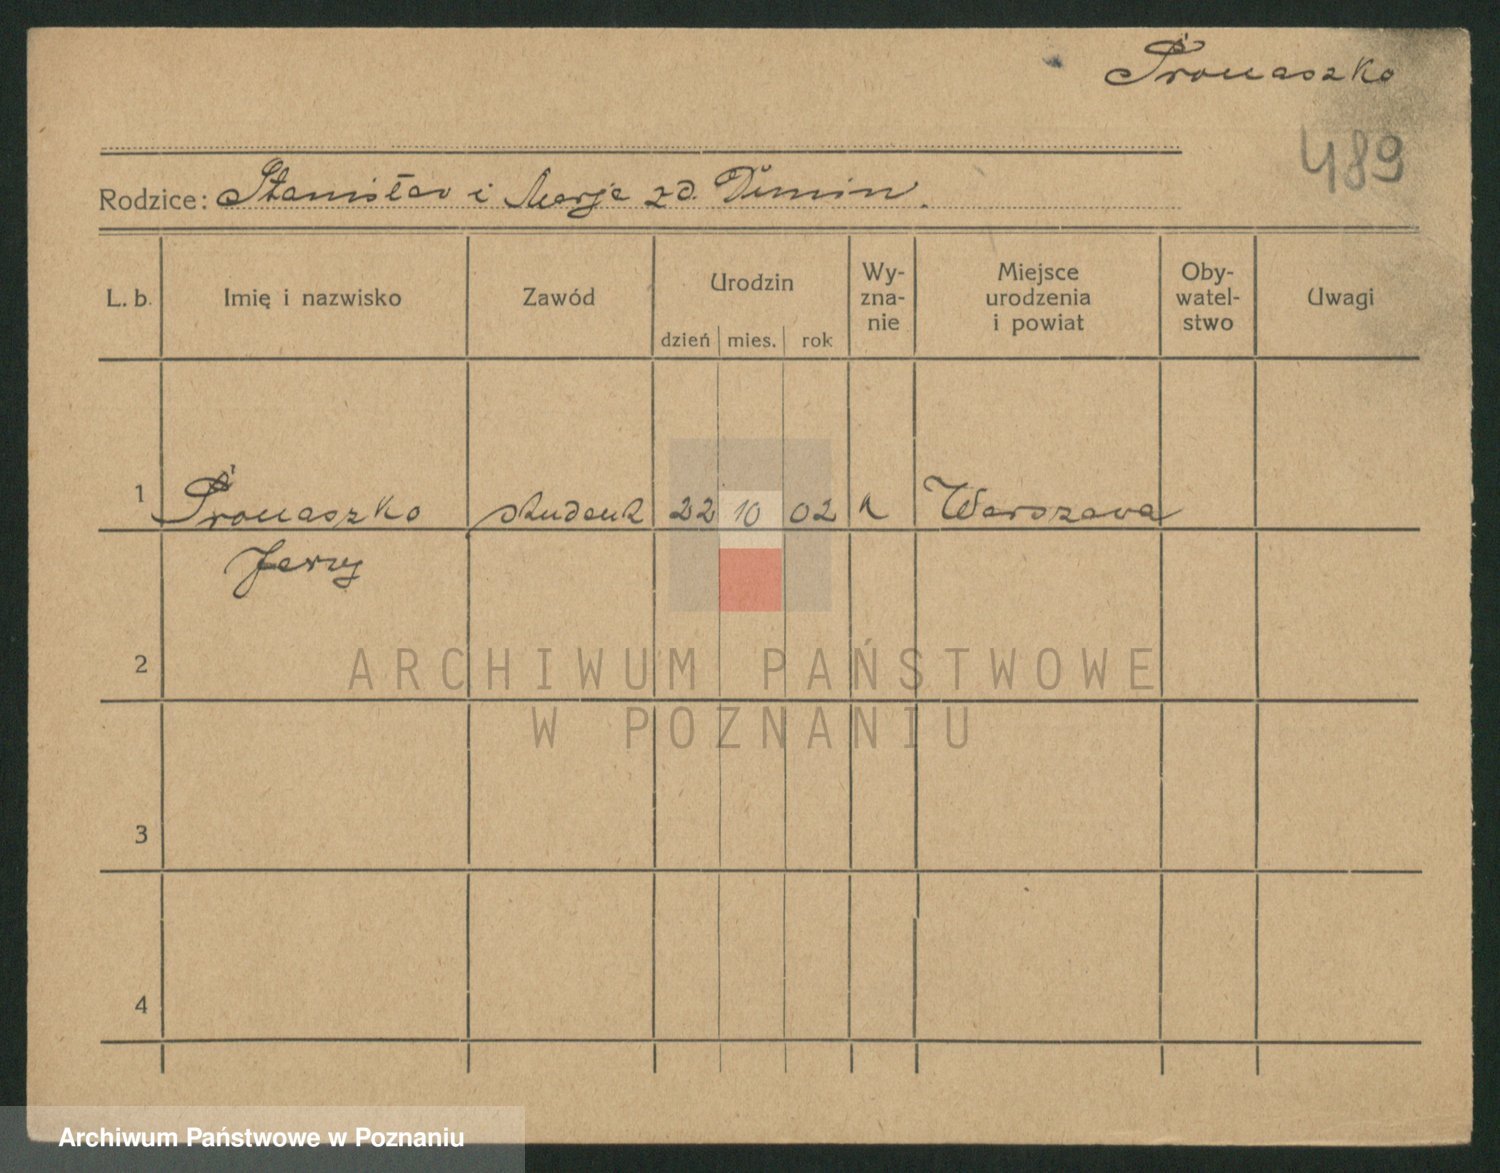 Pronaszko
489
Rodzice: Stanisław i Marja zd.
L. b. Imię i nazwisko Zawód Urodzin Wy-
zna-
nie Miejsce
urodzenia
i powiat Oby-
watel-
stwo Uwagi
dzień mies. rok
1 Pronaszko student 22 10 02 Warszawa
Jerzy
2
ARCHIWUM PAŃSTWOWE
W POZNANIU
3
4
Archiwum Państwowe w Poznaniu